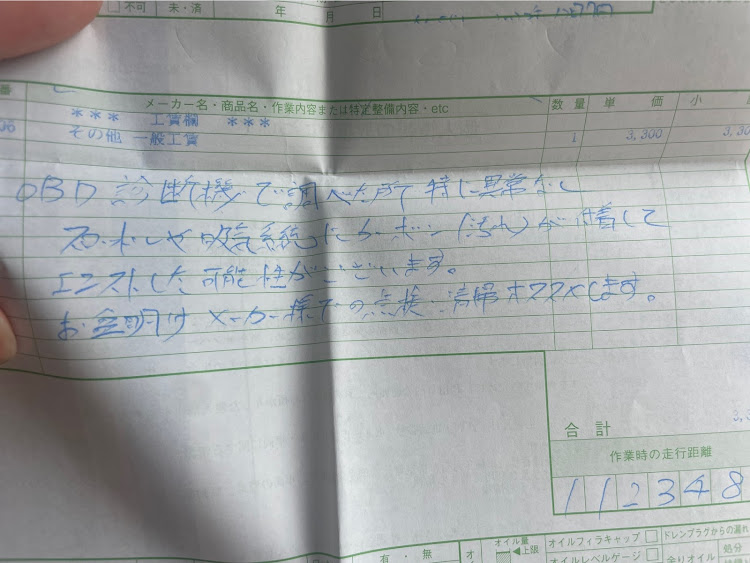 不可 未・済 年 月 日
番 メーカー名・商品名・作業内容または特定整備内容・etc 数量 単価 小
*** 工賃欄 ***
その他 一般工賃 1 3,300 3,30
OBD診断機で調べた所 特に異常なし
スロットルや吸気系統にカーボン(汚れ)が付着して
エンストした可能性がございます。
お盆明け メーカー様での点検・清掃オススメします。
合計
作業時の走行距離
112348
オイルフィラキャップ ドレンプラグからの漏れ
有・無 オイル量 上限 オイルレベルゲージ 処分